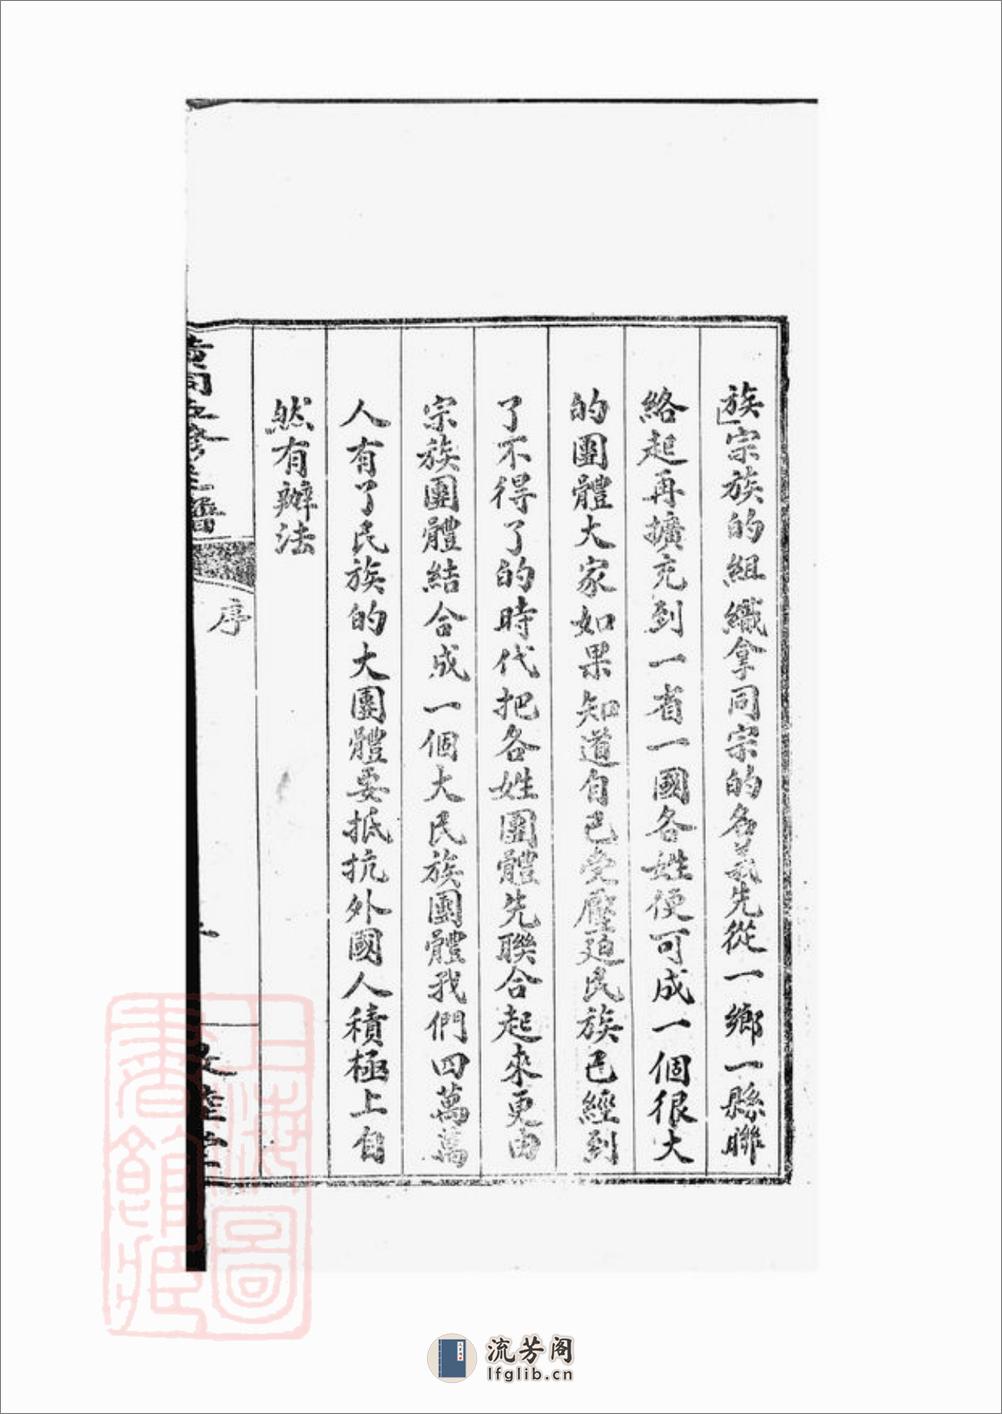 族」宗族的組織拿同宗的名義先從一鄉一縣聯
絡起再擴充到一省一國各姓便可成一個很大
的團體大家如果知道自己受壓迫民族已經到
了不得了的時代把各姓團體先聯合起來更由
宗族團體結合成一個大民族團體我們四萬萬
人有了民族的大團體要抵抗外國人積極上自
然有辦法
序
上海圖書館藏
流芳阁
lfglib.cn